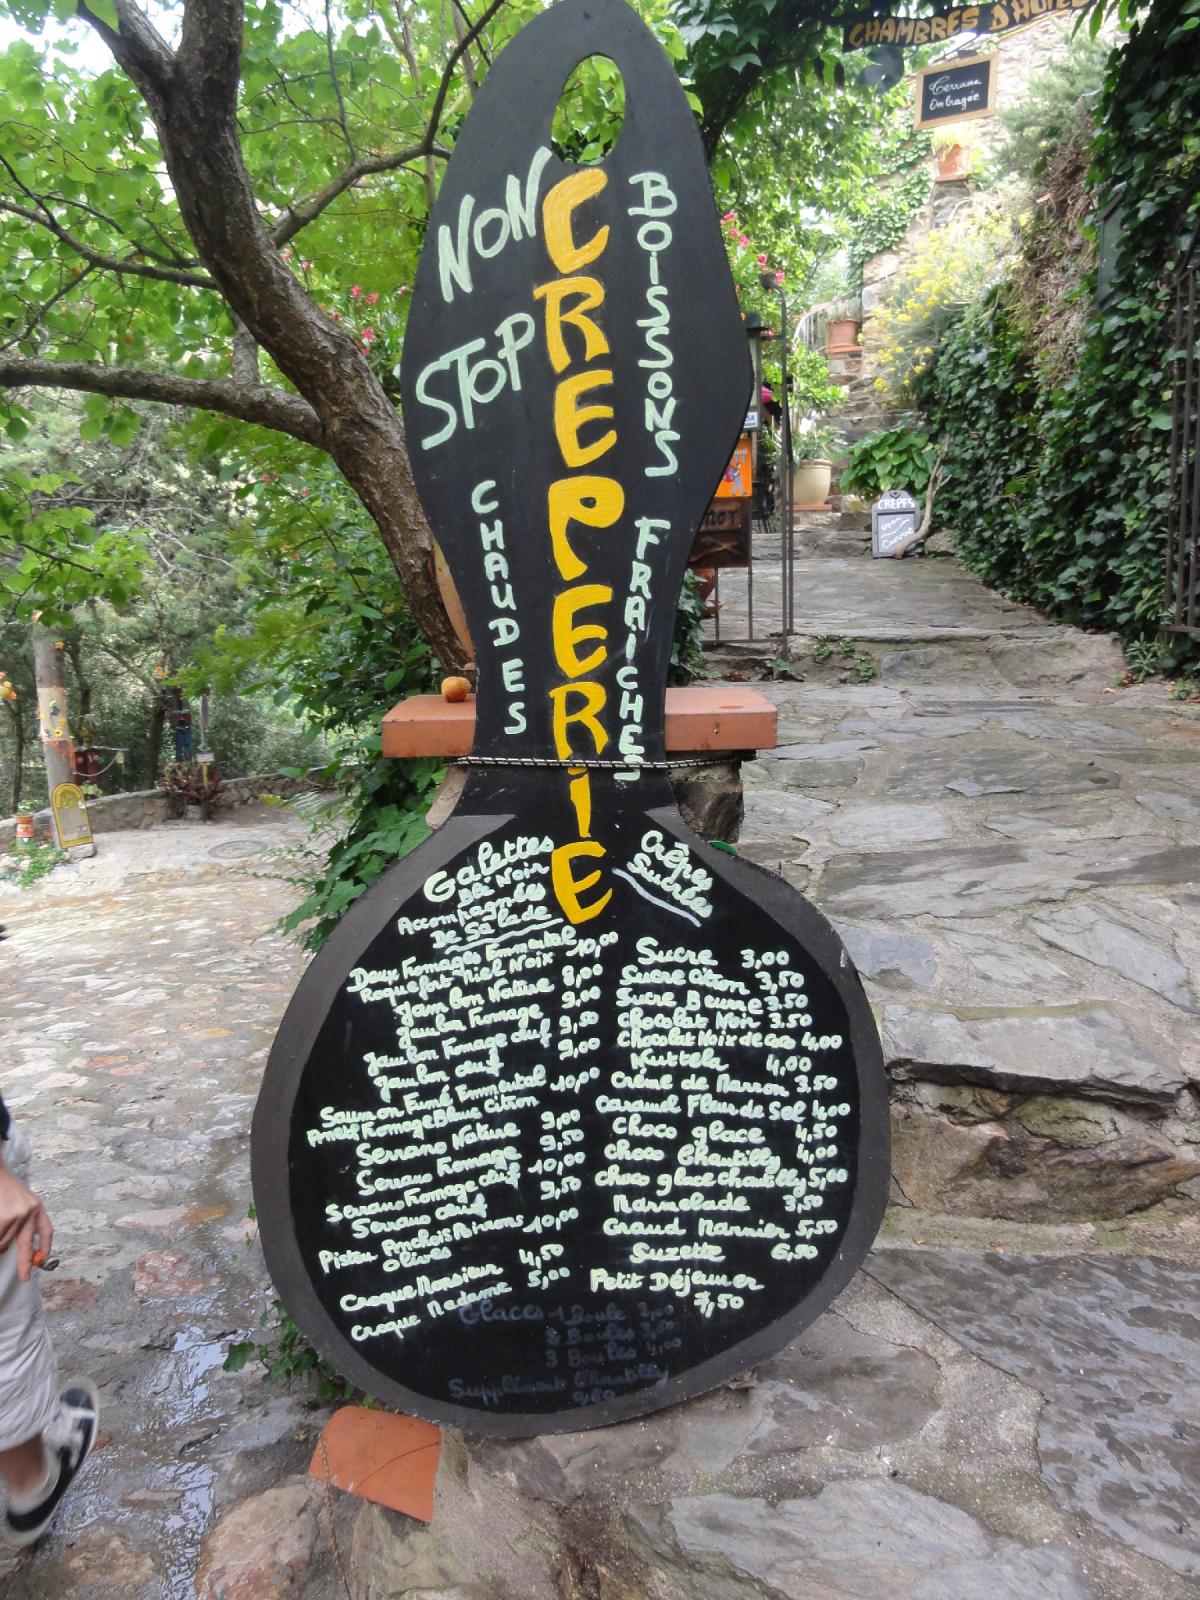 CHAMBRES D'HÔTES
Terrasse
Ombragée
NON
STOP
CREPERIE
BOISSONS
FRAICHES
CHAUDES
CREPES
Galettes
Blé Noir
Accompagnées
De Salade
Deux Fromages Emmental 10,00
Roquefort Miel Noix
Jambon Nature 8,00
Jambon Fromage 9,00
Jambon Fomage œuf 9,50
Jambon œuf 9,00
Saumon Fumé Emmental 10,00
Aneth Fromage Blanc Citron
Serrano Nature 9,00
Serrano Fromage 9,50
Serrano Fromage œuf 10,00
Serrano œuf 9,50
Pistou Anchois Poivrons 10,00
Olives
Croque Monsieur 4,50
Croque Madame 5,00
Crêpes
Sucrées
Sucre 3,00
Sucre Citron 3,50
Sucre Beurre 3.50
Chocolat Noir 3.50
Chocolat Noix de Coco 4,00
Nuttela 4,00
Crème de Marron 3,50
Caramel Fleur de Sel 4,00
Choco glace 4,50
Choco Chantilly 4,00
Choco glace chantilly 5,00
Marmelade 3,50
Grand Marnier 5,50
Suzette 6,50
Petit Déjeuner
7,50
Glaces 1 Boule 2,00
2 Boules 3,50
3 Boules 4,00
Supplément Chantilly